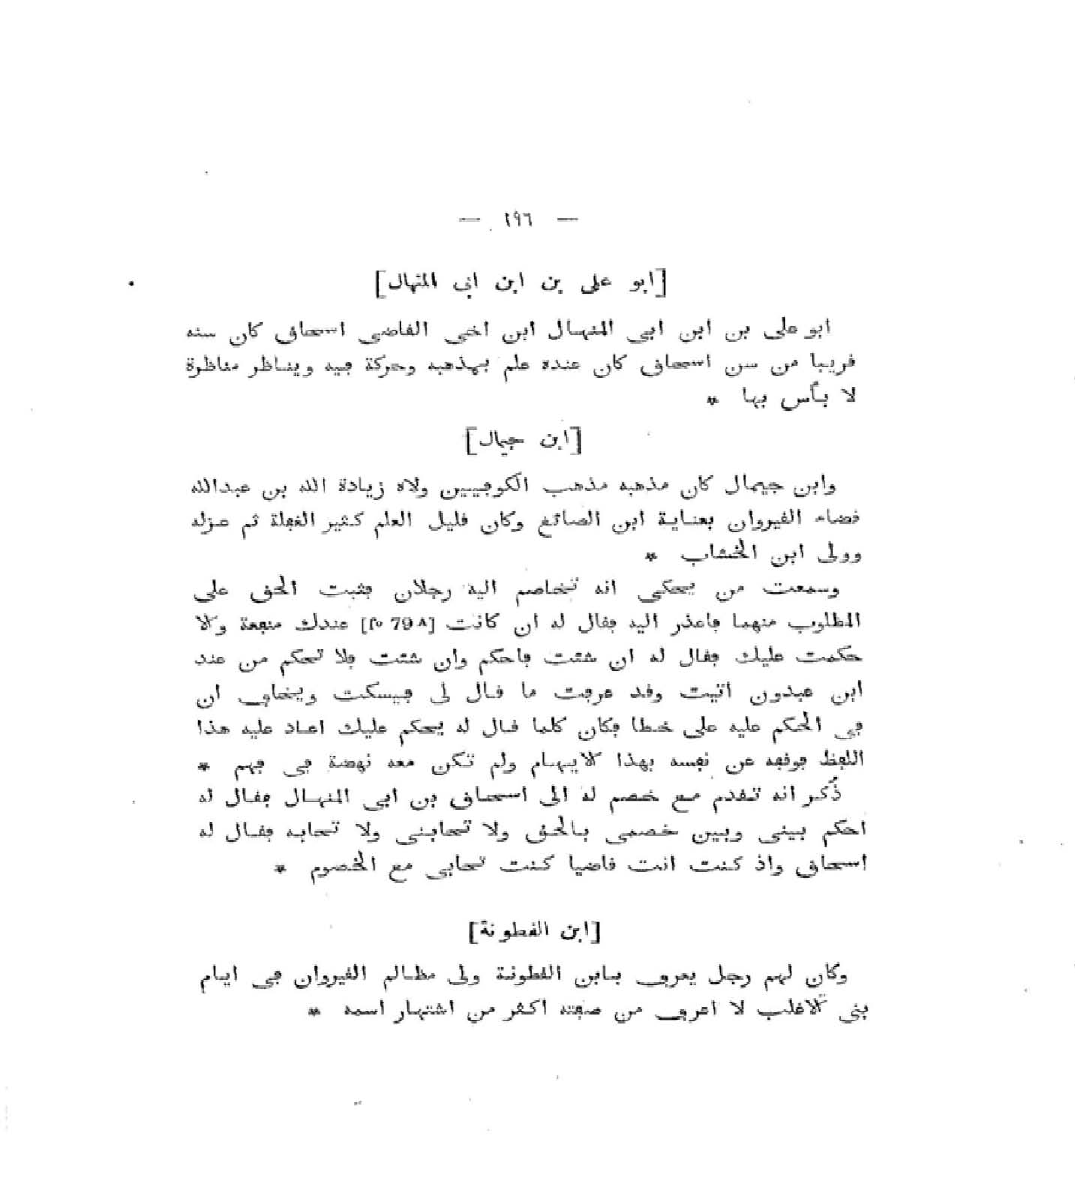 — ١٩٦ —
[ابو على بن ابن ابى المنهال]
ابو على بن ابن ابى المنهال ابن اخى القاضى اسحاق كان سنه
قريبا من سن اسحاق كان عنده علم بمذهبه وحركة فيه ويناظر مناظرة
لا بأس بها *
[ابن جيمال]
وابن جيمال كان مذهبه مذهب الكوفيين ولاه زيادة الله بن عبدالله
قضاء القيروان بعناية ابن الصائغ وكان قليل العلم كثير الغفلة ثم عزله
وولى ابن الخشاب *
وسمعت من يحكى انه تخاصم اليه رجلان فثبت الحق على
المطلوب منهما فاعذر اليه فقال له ان كانت [fo 79 A] عندك منفعة والا
حكمت عليك فقال له ان شئت فاحكم وان شئت فلا تحكم من عند
ابن عبدون اتيت وقد عرفت ما قال لى فيسكت ويخاف ان
فى الحكم عليه على خطا فكان كلما قال له يحكم عليك اعاد عليه هذا
اللفظ فوقفه عن نفسه بهذا الايهام ولم تكن معه نهضة فى فهم *
ذُكر انه تقدم مع خصم له الى اسحاق بن ابى المنهال فقال له
احكم بينى وبين خصمى بالحق ولا تحابنى ولا تحابه فقال له
اسحاق واذ كنت انت قاضيا كنت تحابى مع الخصوم *
[ابن القطونة]
وكان لهم رجل يعرف بابن القطونة ولى مظالم القيروان فى ايام
بنى الاغلب لا اعرف من صفته اكثر من اشتهار اسمه *